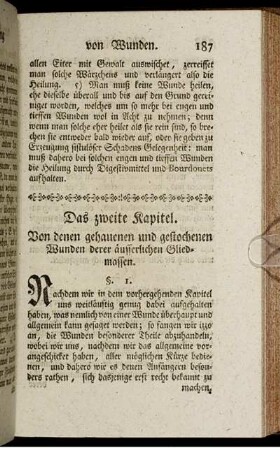 von Wunden. 187
allen Eiter mit Gewalt auswischet, zerreisset
man solche Wärzchens und verlängert also die
Heilung. 5) Man muß keine Wunde heilen,
ehe dieselbe überall und bis auf den Grund gerei-
niget worden, welches um so mehr bei engen und
tieffen Wunden wol in Acht zu nehmen; denn
wenn man solche eher heilet als sie rein sind, so bre-
chen sie entweder bald wieder auf, oder sie geben zu
Erzeugung fistulöser Schadens Gelegenheit: man
muß dahero bei solchen engen und tieffen Wunden
die Heilung durch Digestivmittel und Bourdonets
aufhalten.
Das zweite Kapitel.
Von denen gehauenen und gestochenen
Wunden derer äusserlichen Glied-
massen.
§. 1.
Nachdem wir in dem vorhergehenden Kapitel
uns weitläuftig genug dabei aufgehalten
haben, was nemlich von einer Wunde überhaupt und
allgemein kann gesaget werden; so fangen wir izo
an, die Wunden besonderer Theile abzuhandeln,
wobei wir uns, nachdem wir das allgemeine vor-
angeschicket haben, aller möglichen Kürze bedie-
nen, und dahero wir es denen Anfängern beson-
ders rathen, sich dasjenige erst recht bekannt zu
machen,